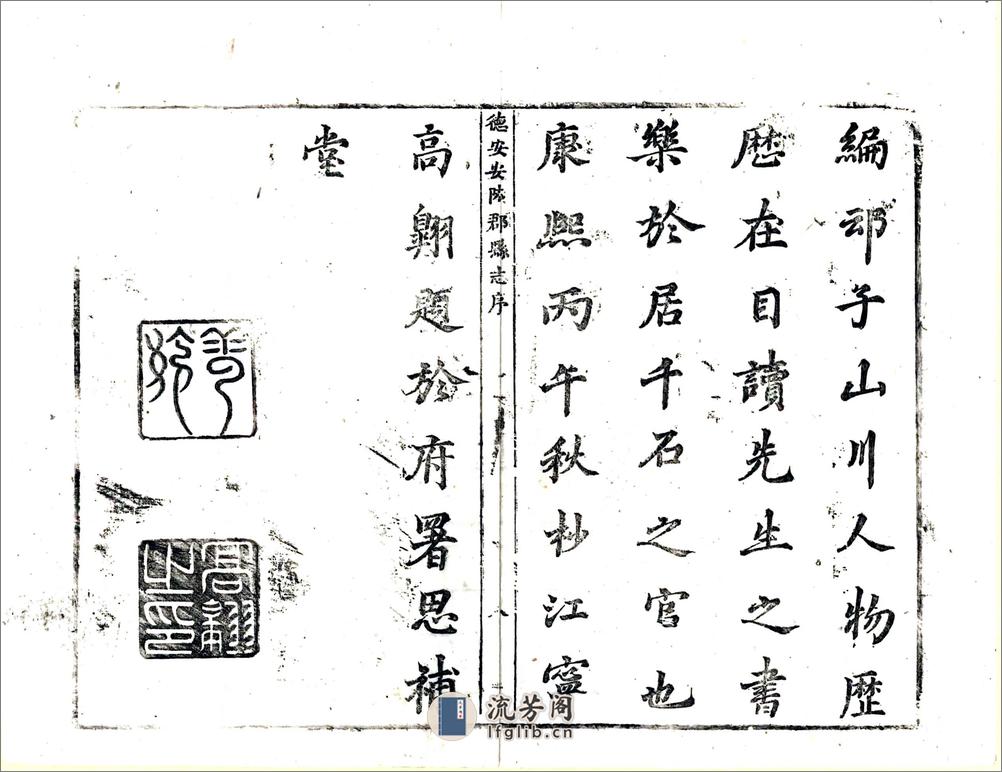 編子山川人物歷
歷在目讀先生之書
樂於居千石之官也
康熙丙午秋杪江寧
德安安陸郡縣志序
八
高翱題於府署思補
堂
高翱之印
流芳阁
lfglib.cn